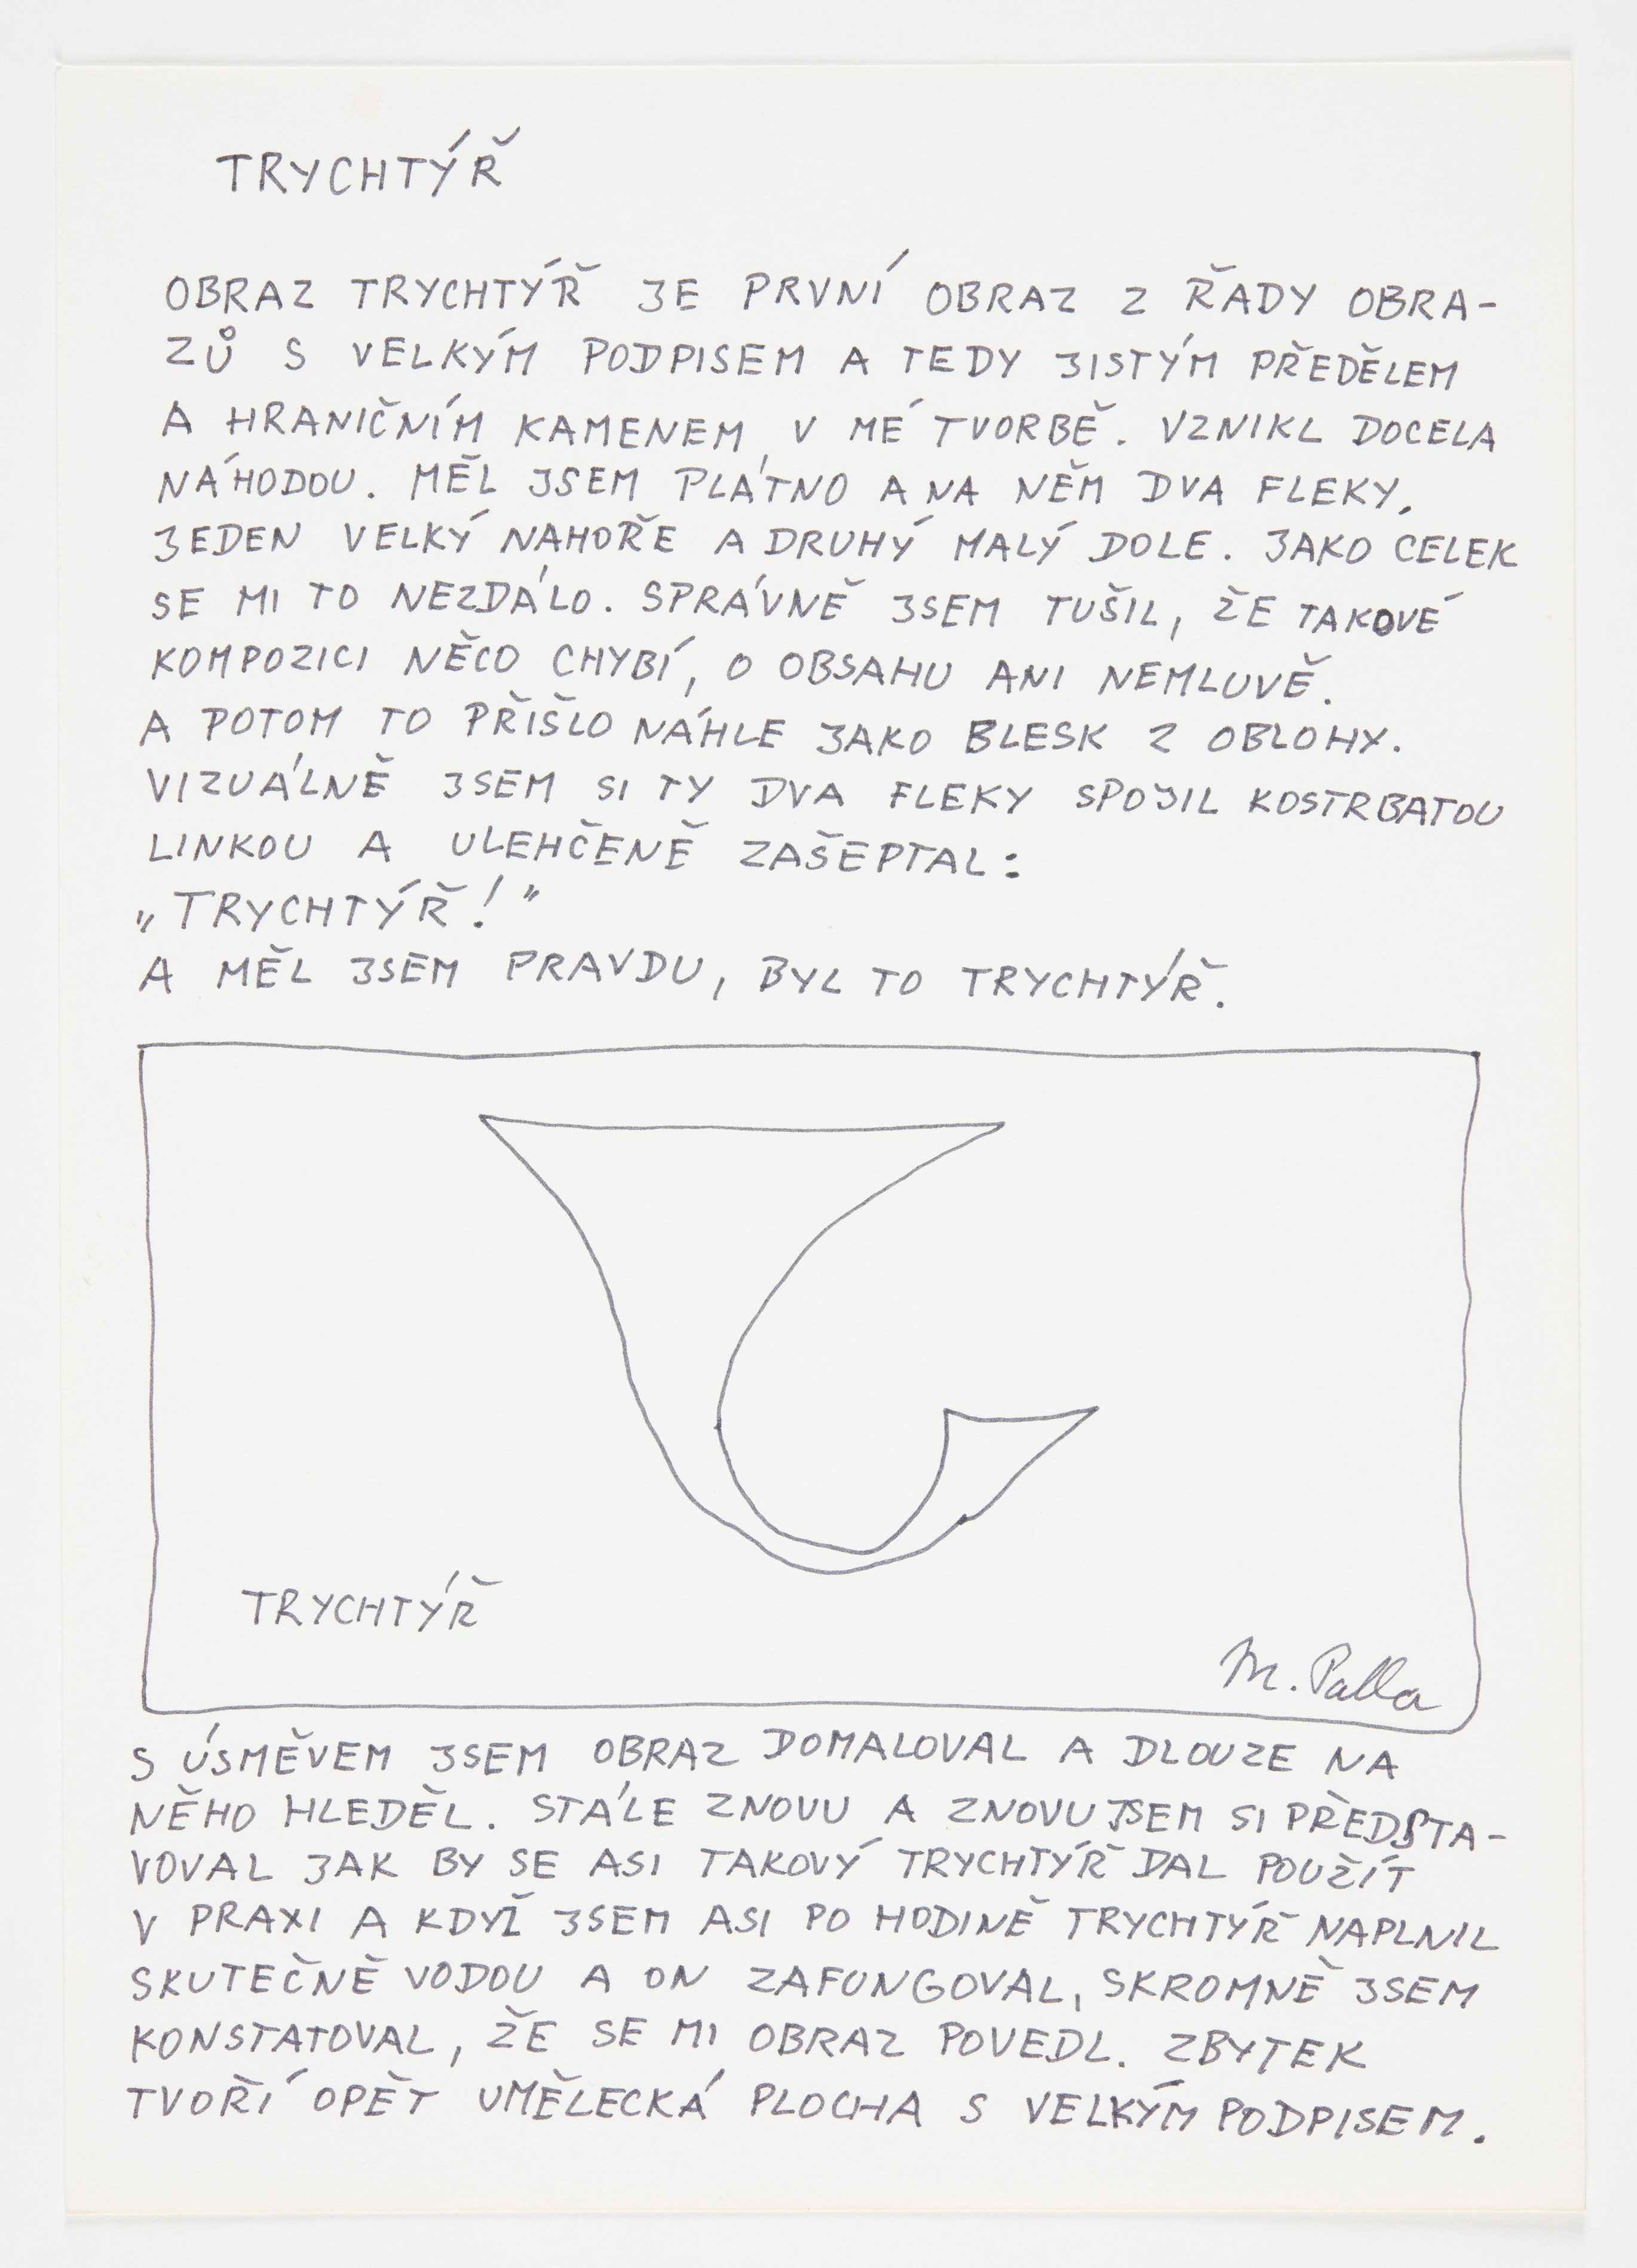 TRYCHTÝŘ
OBRAZ TRYCHTÝŘ JE PRVNÍ OBRAZ Z ŘADY OBRA-
ZŮ S VELKÝM PODPISEM A TEDY JISTÝM PŘEDĚLEM
A HRANIČNÍM KAMENEM V MÉ TVORBĚ. VZNIKL DOCELA
NÁHODOU. MĚL JSEM PLÁTNO A NA NĚM DVA FLEKY.
JEDEN VELKÝ NAHOŘE A DRUHÝ MALÝ DOLE. JAKO CELEK
SE MI TO NEZDÁLO. SPRÁVNĚ JSEM TUŠIL, ŽE TAKOVÉ
KOMPOZICI NĚCO CHYBÍ, O OBSAHU ANI NEMLUVĚ.
A POTOM TO PŘIŠLO NÁHLE JAKO BLESK Z OBLOHY.
VIZUÁLNĚ JSEM SI TY DVA FLEKY SPOJIL KOSTRBATOU
LINKOU A ULEHČENĚ ZAŠEPTAL:
„TRYCHTÝŘ!"
A MĚL JSEM PRAVDU, BYL TO TRYCHTÝŘ.
TRYCHTÝŘ
M. Palla
S ÚSMĚVEM JSEM OBRAZ DOMALOVAL A DLOUZE NA
NĚHO HLEDĚL. STÁLE ZNOVU A ZNOVU JSEM SI PŘEDSTA-
VOVAL JAK BY SE ASI TAKOVÝ TRYCHTÝŘ DAL POUŽÍT
V PRAXI A KDYŽ JSEM ASI PO HODINĚ TRYCHTÝŘ NAPLNIL
SKUTEČNĚ VODOU A ON ZAFUNGOVAL, SKROMNĚ JSEM
KONSTATOVAL, ŽE SE MI OBRAZ POVEDL. ZBYTEK
TVOŘÍ OPĚT UMĚLECKÁ PLOCHA S VELKÝM PODPISEM.